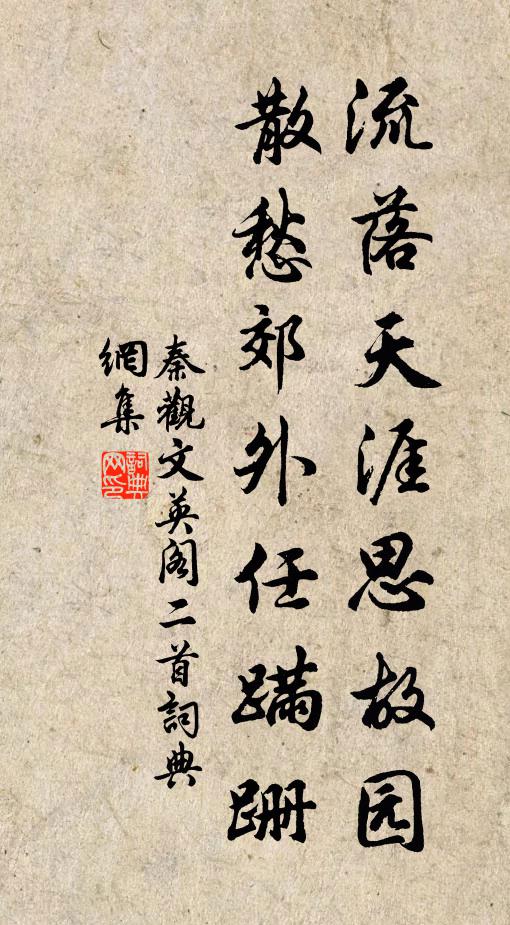 流落天涯思故园
散愁郊外任蹣跚
秦觀文英阁二首詞典
網集
詞典
网印